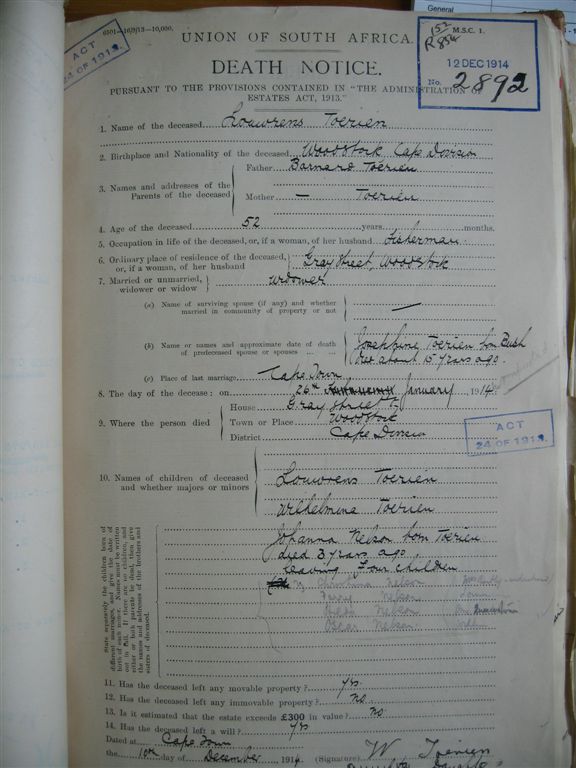 6501—16/9/13—10,000.
ACT
24 OF 1913.
UNION OF SOUTH AFRICA.
M.S.C. 1.
12 DEC 1914
No. 2892
DEATH NOTICE.
PURSUANT TO THE PROVISIONS CONTAINED IN "THE ADMINISTRATION OF
ESTATES ACT, 1913."
1. Name of the deceased Louwrens Toerien
2. Birthplace and Nationality of the deceased Woodstock Cape Division
3. Names and addresses of the Parents of the deceased
Father Barnard Toerien
Mother — Toerien
4. Age of the deceased 52 years months.
5. Occupation in life of the deceased, or, if a woman, of her husband Fisherman
6. Ordinary place of residence of the deceased, or, if a woman, of her husband Gray Street, Woodstock
7. Married or unmarried, widower or widow Widower
(a) Name of surviving spouse (if any) and whether married in community of property or not —
(b) Name or names and approximate date of death of predeceased spouse or spouses ... ... Josephine Toerien born Rush
died about 15 years ago
(c) Place of last marriage Cape Town
8. The day of the decease: on 26th January 1914
9. Where the person died
House Gray Street
Town or Place Woodstock
District Cape Division
ACT
24 OF 1913.
10. Names of children of deceased and whether majors or minors
Louwrens Toerien
Wilhelmina Toerien
Johanna Nelson born Toerien
died 3 years ago
leaving Four children
Christina Nelson
Nelson
Nelson
Nelson
State separately the children born of different marriages, and give the date of birth of each minor. Names must be written out in full. If there are no children, and either or both parents be dead, then give the names and addresses of the brothers and sisters of deceased.
11. Has the deceased left any movable property? yes
12. Has the deceased left any immovable property? no
13. Is it estimated that the estate exceeds £300 in value? no
14. Has the deceased left a will? yes
Dated at Cape Town
the 10th day of December 1914 (Signature) W Toerien